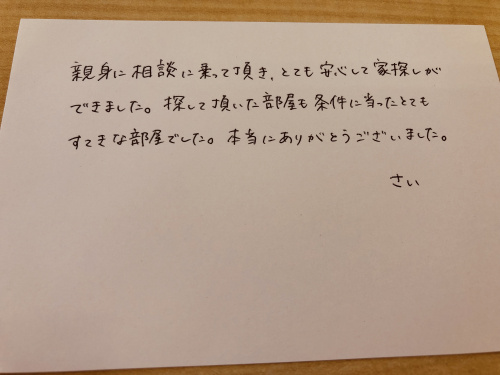 親身に相談に乗って頂き、とても安心して家探しが
できました。探して頂いた部屋も条件に当ったとても
すてきな部屋でした。本当にありがとうございました。
さい